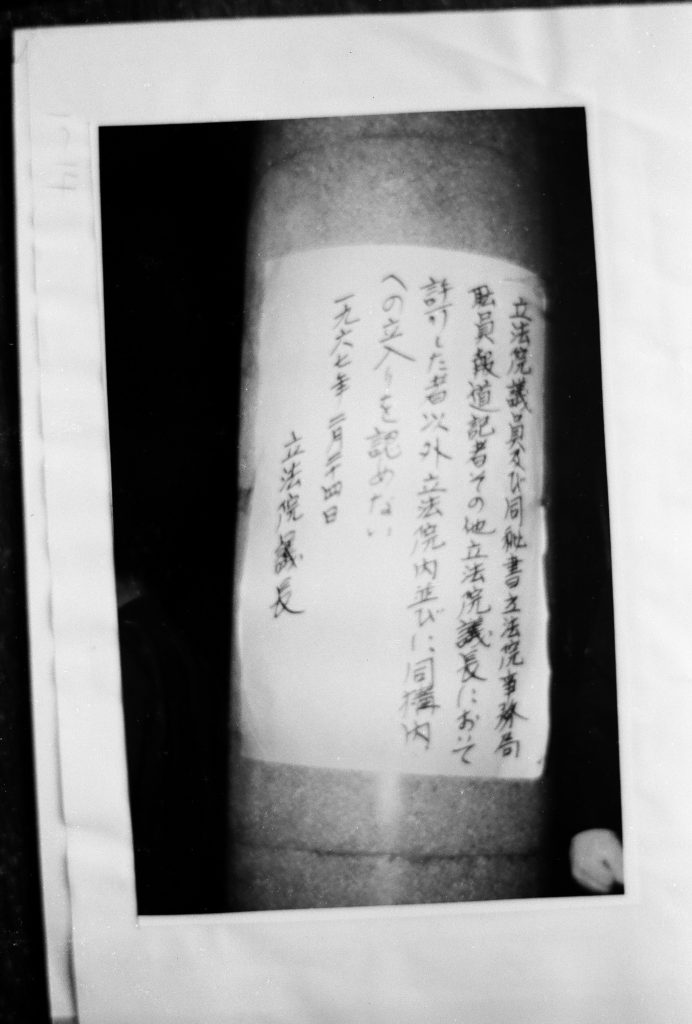 立法院議員及び同秘書立法院事務局
職員報道記者その他立法院議長において
許可した者以外立法院内並びに同構内
への立入りを認めない
一九六七年二月二十四日
立法院議長